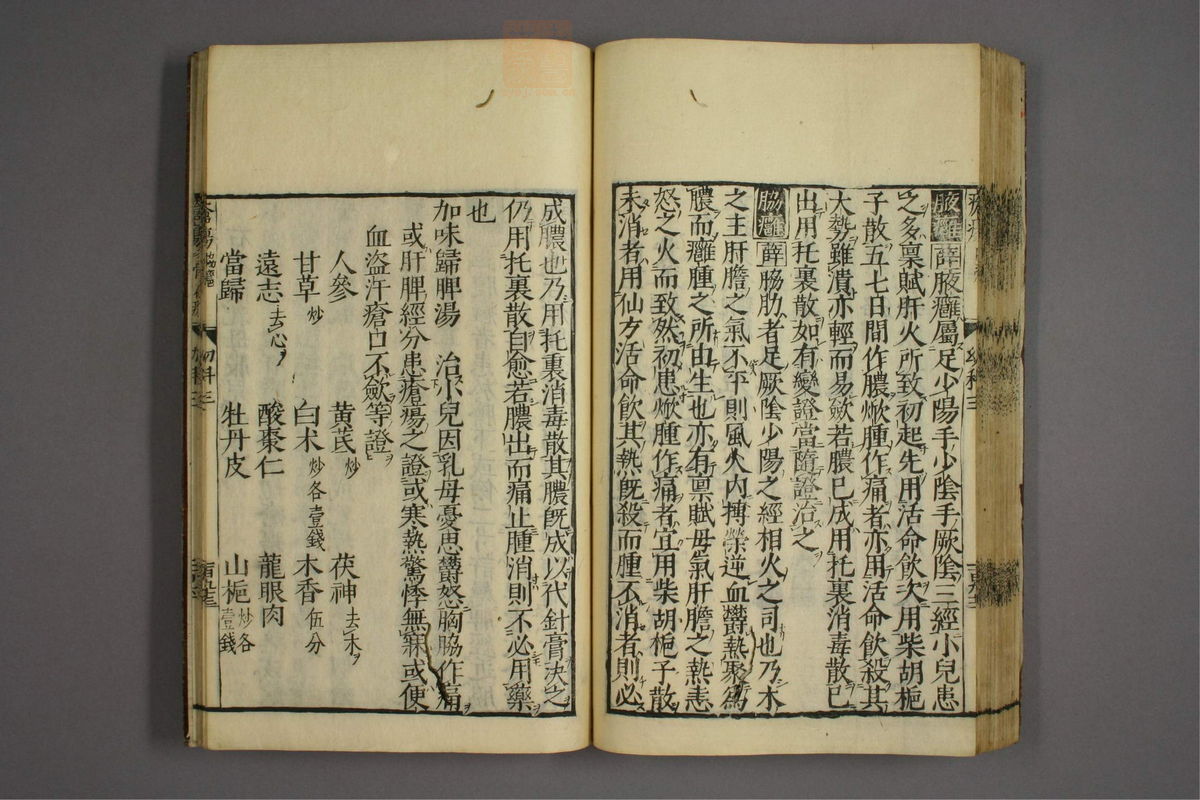 腋癰 薛 腋癰屬足少陽手少陰手厥陰三經小兒患
之多禀賦肝火所致初起先用活命飲次用柴胡梔
子散五七日間作膿焮腫作痛者亦用活命飲殺其
大勢雖潰亦輕而易斂若膿已成用托裏消毒散已
出用托裏散如有變證當隨證治之
脇癰 薛 脇肋者足厥陰少陽之經相火之司也乃木
之主肝膽之氣不平則風火內搏榮逆血欝熱聚爲
膿而癰腫之所由生也亦有禀賦毋氣肝膽之熱恚
怒之火而致然初患焮腫作痛者宜用柴胡梔子散
未消者用仙方活命飲其熱既殺而腫不消者則必
幼科三
成膿也乃用托裏消毒散其膿既成以代針膏決之
仍用托裏散自愈若膿出而痛止腫消則不必用藥
也
加味歸脾湯 治小兒因乳母憂思欝怒胸脇作痛
或肝脾經分患瘡瘍之證或寒熱驚悸無寐或便
血盗汗瘡口不斂等證
人參 黃芪炒 茯神去木
甘草炒 白朮炒各壹錢 木香伍分
遠志去心 酸棗仁 龍眼肉
當歸 牡丹皮 山梔炒各壹錢